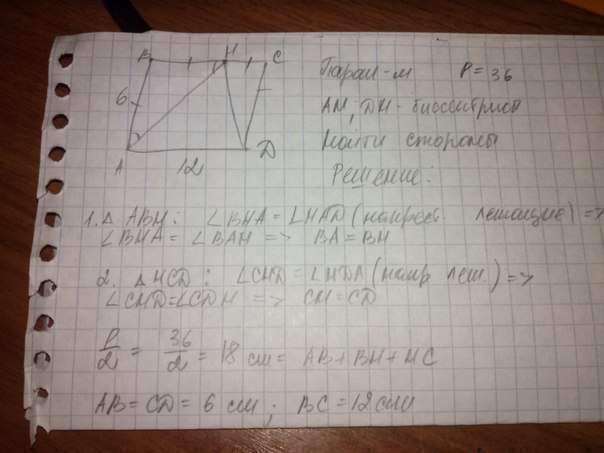 B H C
6
A 12 D
Парал-м P=36
AH; DH - биссектриса
Найти стороны
Решение:
1. △ ABH: ∠BHA = ∠HAD (накрест. лежащие) =>
∠BHA = ∠BAH => BA = BH
2. △HCD: ∠CHD = ∠HDA (накр леж.) =>
∠CHD = ∠CDH => CH = CD
P/2 = 36/2 = 18 см = AB + BH + HC
AB = CD = 6 см; BC = 12 см